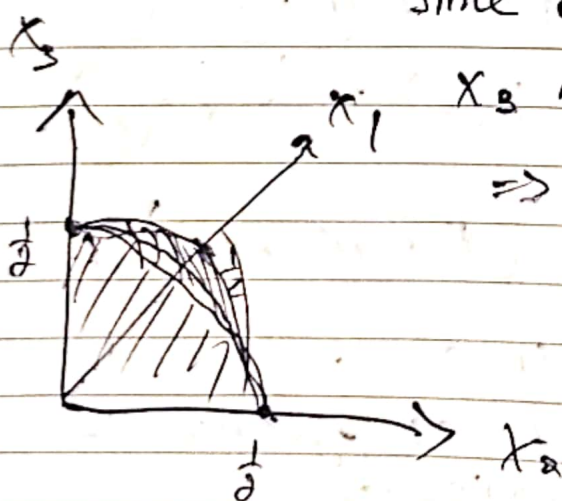 since
X₃
X₁
X₃
⇒
1/2
1/2
X₂